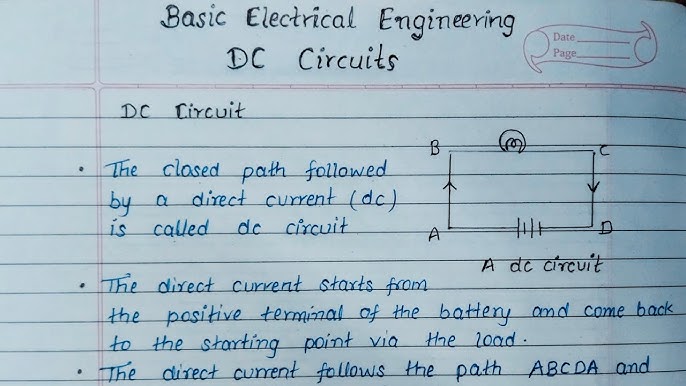 Basic Electrical Engineering
DC Circuits
Date
Page
DC Circuit
B
C
• The closed path followed
by a direct current (dc)
is called dc circuit
A
D
A dc circuit
• The direct current starts from
the positive terminal of the battery and come back
to the starting point via the load.
• The direct current follows the path ABCDA and